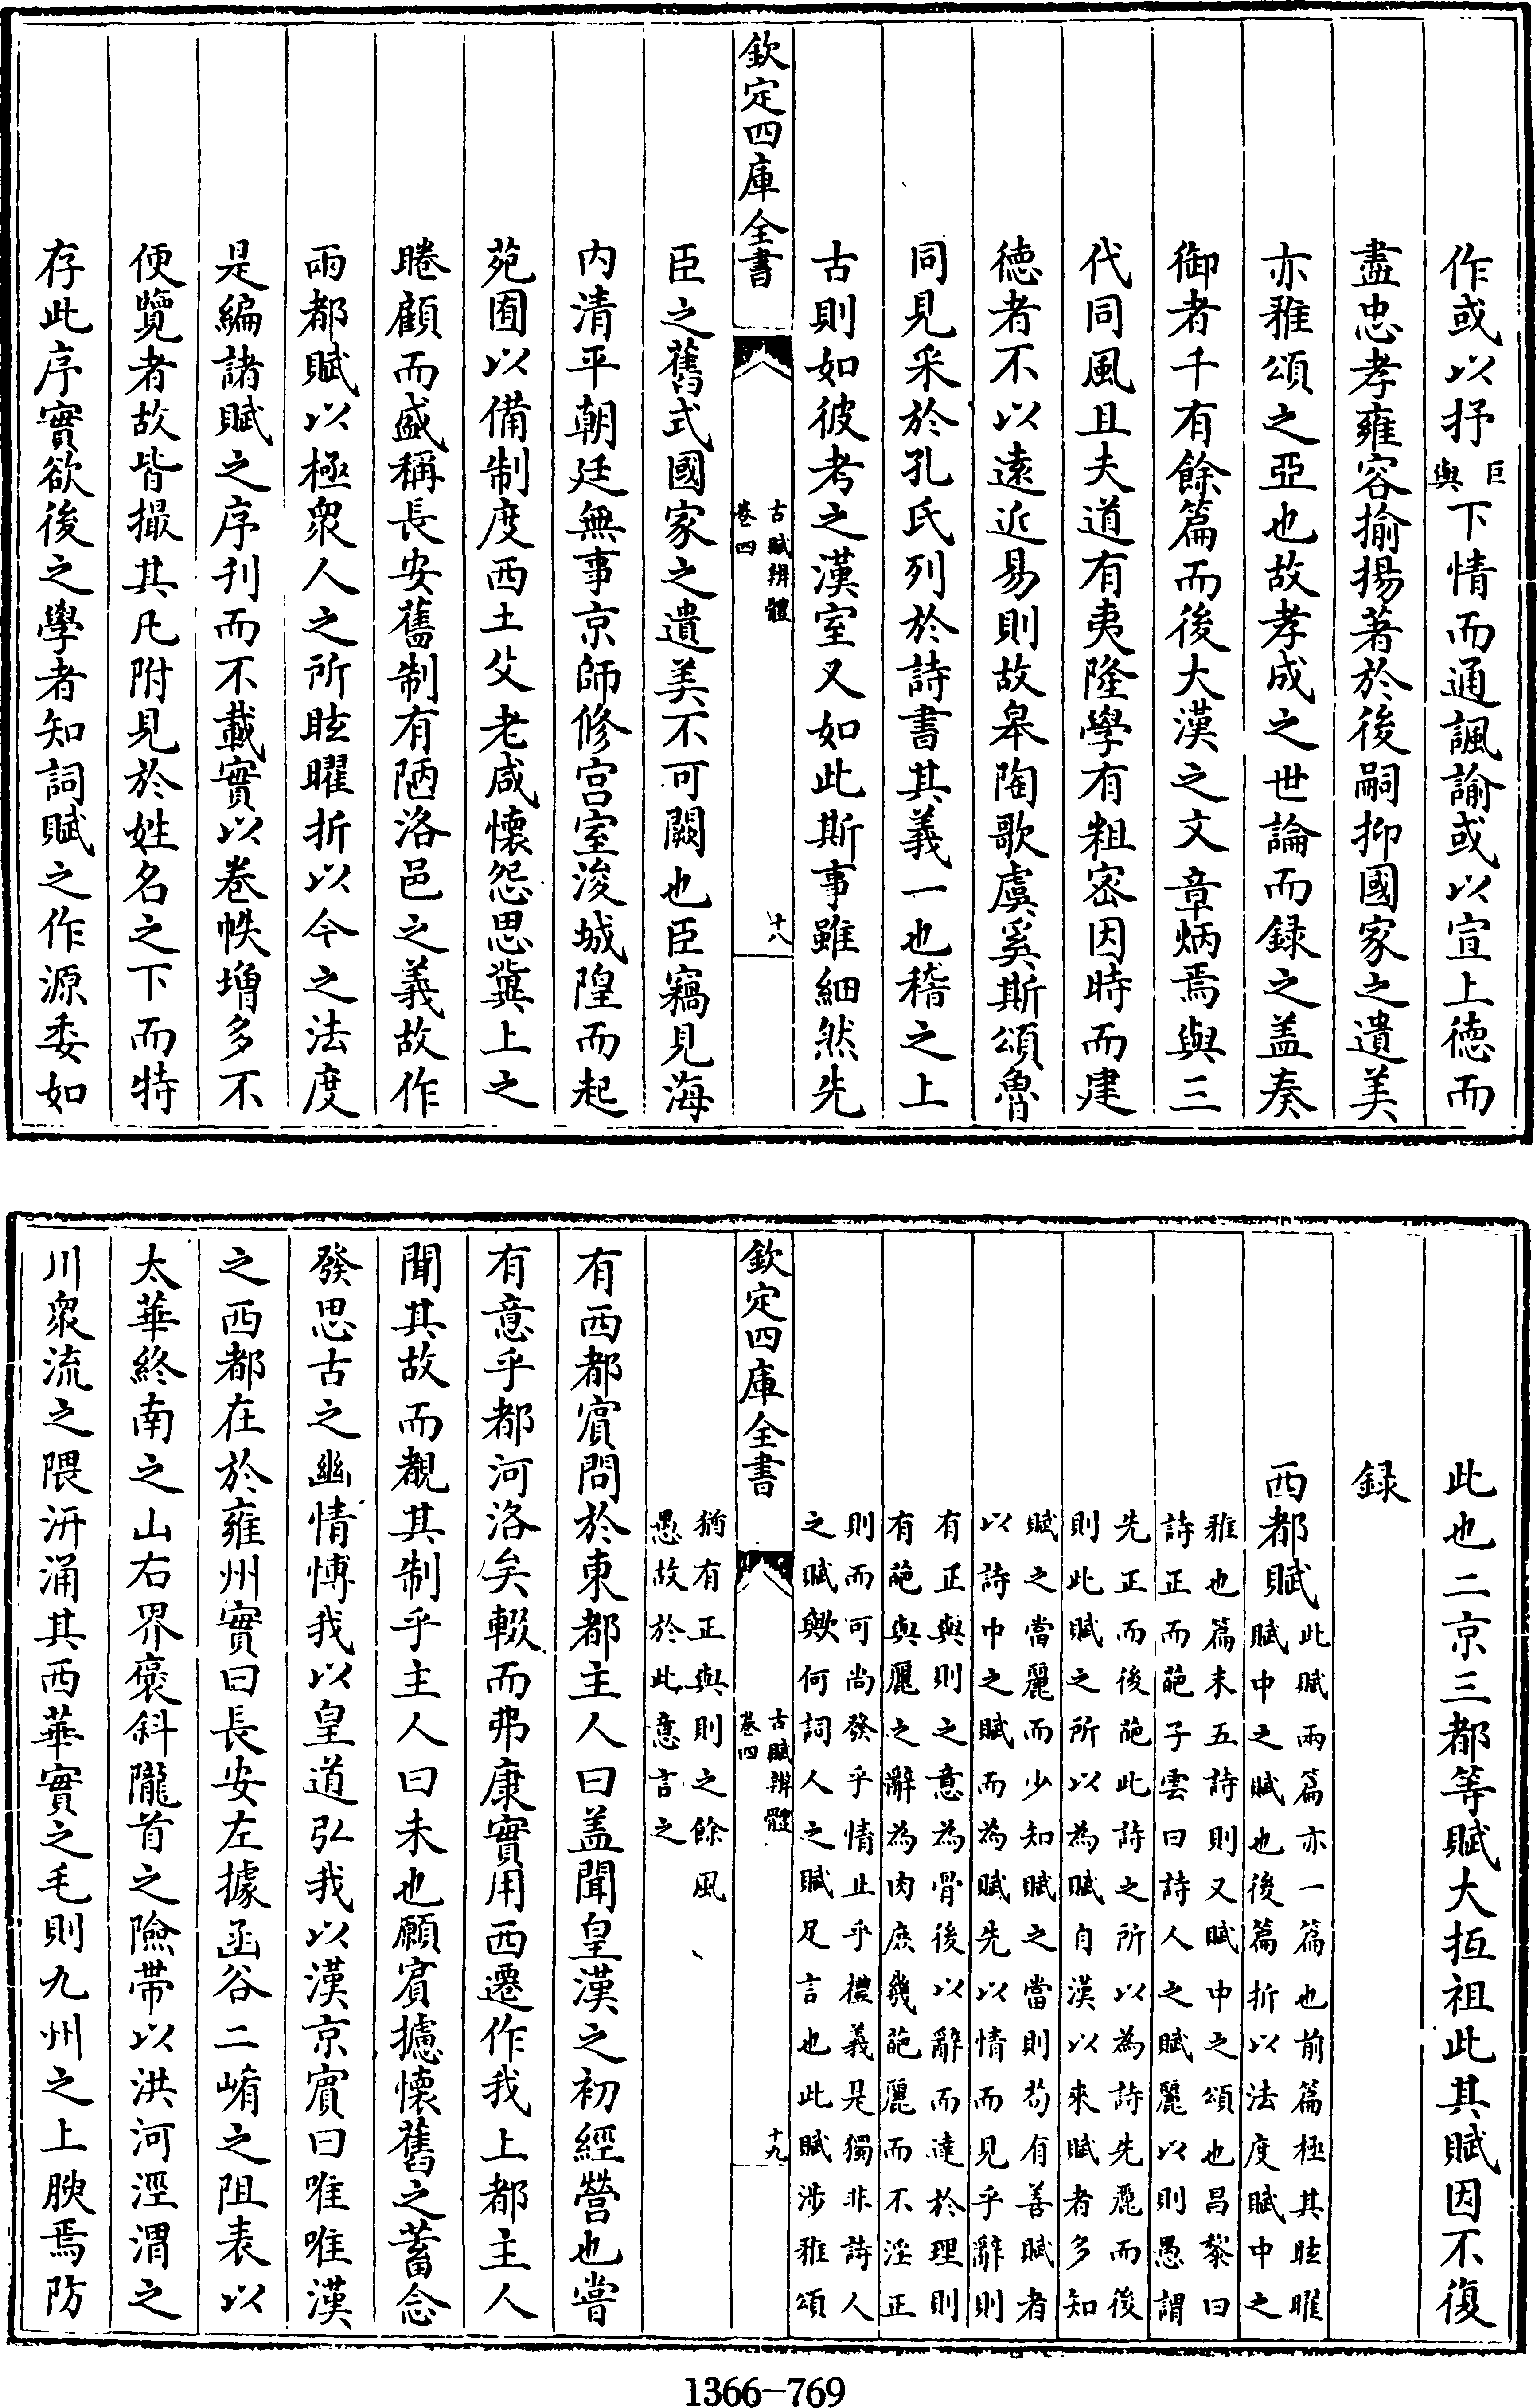 作或以抒巨與下情而通諷諭或以宣上徳而
盡忠孝雍容揄揚著於後嗣抑國家之遺美
亦雅頌之亞也故孝成之世論而録之盖奏
御者千有餘篇而後大漢之文章炳焉與三
代同風且夫道有夷隆學有粗宻因時而建
徳者不以遠近易則故皋陶歌虞奚斯頌魯
同見采於孔氏列於詩書其義一也稽之上
古則如彼考之漢室又如此斯事雖細然先
欽定四庫全書
古賦辨體
卷四
十八
臣之舊式國家之遺美不可闕也臣竊見海
内清平朝廷無事京師修宫室浚城隍而起
苑囿以備制度西土父老咸懷怨思冀上之
睠顧而盛稱長安舊制有陋洛邑之義故作
兩都賦以極衆人之所眩曜折以今之法度
是編諸賦之序刋而不載實以卷帙増多不
便覽者故皆撮其凡附見於姓名之下而特
存此序實欲後之學者知詞賦之作源委如
此也二京三都等賦大抵祖此其賦因不復
録
西都賦
此賦兩篇亦一篇也前篇極其眩曜
賦中之賦也後篇折以法度賦中之
雅也篇末五詩則又賦中之頌也昌黎曰
詩正而葩子雲曰詩人之賦麗以則愚謂
先正而後葩此詩之所以為詩先麗而後
則此賦之所以為賦自漢以來賦者多知
賦之當麗而少知賦之當則苟有善賦者
以詩中之賦而為賦先以情而見乎辭則
有正與則之意為骨後以辭而達於理則
有葩與麗之辭為肉庶幾葩麗而不淫正
則而可尚發乎情止乎禮義是獨非詩人
之賦歟何詞人之賦足言也此賦涉雅頌
欽定四庫全書
古賦辨體
卷四
十九
猶有正與則之餘風
愚故於此意言之
有西都賔問於東都主人曰盖聞皇漢之初經營也嘗
有意乎都河洛矣輟而弗康實用西遷作我上都主人
聞其故而覩其制乎主人曰未也願賔攄懷舊之蓄念
發思古之幽情愽我以皇道弘我以漢京賔曰唯唯漢
之西都在於雍州實曰長安左據函谷二崤之阻表以
太華終南之山右界褒斜隴首之險帶以洪河涇渭之
川衆流之隈汧涌其西華實之毛則九州之上腴焉防
1366-769